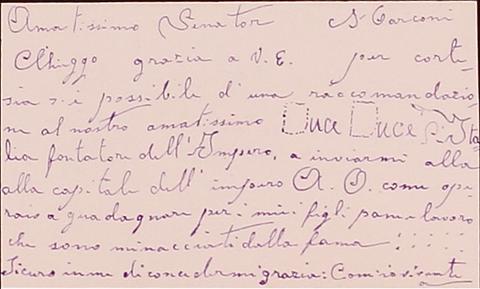 Amatissimo Senator S Marconi
Chieggo grazia a V. E. per corte-
sia s.i possibile d'una raccomandazio
ne al nostro amatissimo Duce Duce d'Ita
lia fontatore dell'Impero, a inviarmi alla
alla capitale dell'impero A. O. come ope
raio a guadagnare per i miei figli pane lavoro
che sono minacciati dalla fama : : : :
Sicuro in me di concedermi grazia: